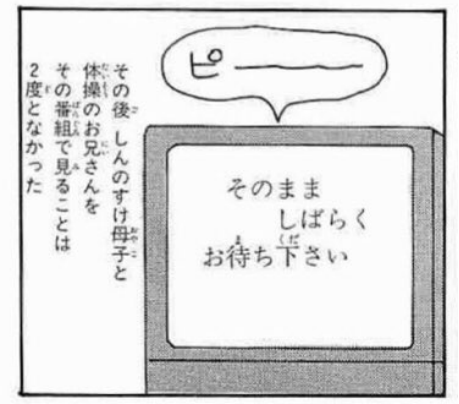 ピ――――
そのまま
しばらく
お待ち下さい
その後しんのすけ母子と
体操のお兄さんを
その番組で見ることは
2度となかった